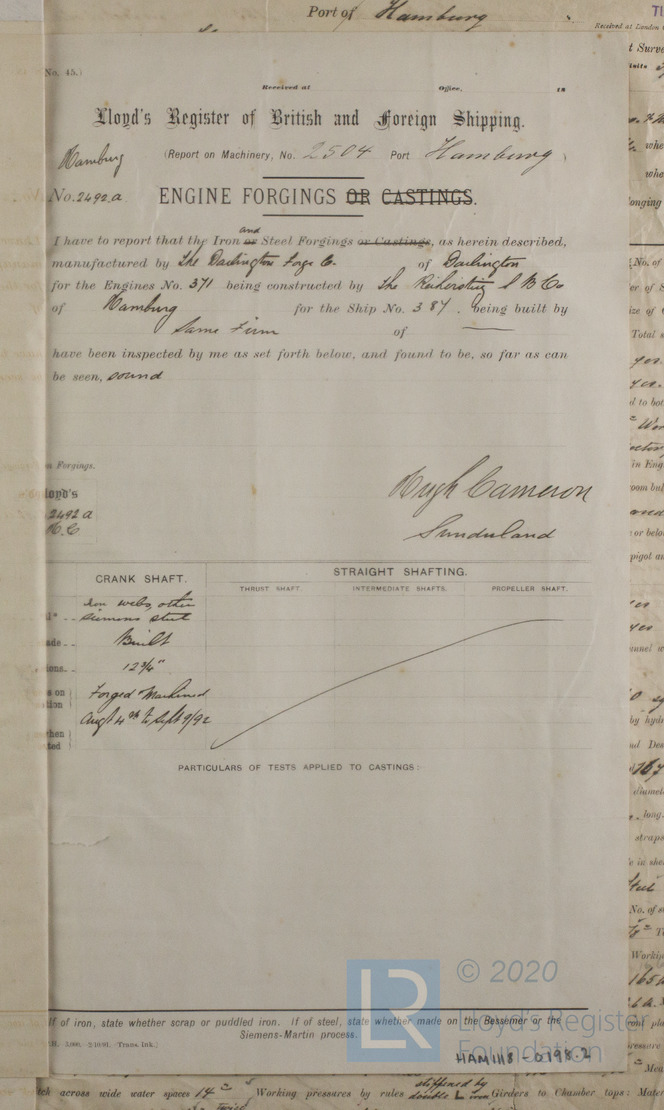 Port of Hamburg
Received at London
No. 45.)
Received at Office, 18
Lloyd's Register of British and Foreign Shipping.
Hamburg (Report on Machinery, No. 2504 Port Hamburg )
No. 2492.a ENGINE FORGINGS OR CASTINGS.
and
I have to report that the Iron or Steel Forgings or Castings, as herein described,
manufactured by The Darlington Forge Co. of Darlington
for the Engines No. 371 being constructed by The Reiherstieg S B Co
of Hamburg for the Ship No. 387. being built by
Same Firm of —
have been inspected by me as set forth below, and found to be, so far as can
be seen, sound
Forgings.
loyd's
2492 a
H.C
Hugh Cameron
Sunderland
CRANK SHAFT. STRAIGHT SHAFTING.
THRUST SHAFT. INTERMEDIATE SHAFTS. PROPELLER SHAFT.
Iron webs, other
siemens steel
Built
12¾"
Forged Machined
Augt 4th to Sept 9/92
PARTICULARS OF TESTS APPLIED TO CASTINGS:—
If of iron, state whether scrap or puddled iron. If of steel, state whether made on the Bessemer or the
Siemens-Martin process.
(Trans. Ink.)
© 2020
Lloyd's Register
Foundation
HAM1118-0198.2
stiffened by
across wide water spaces 14" Working pressures by rules double L iron Girders to Chamber tops: Mater